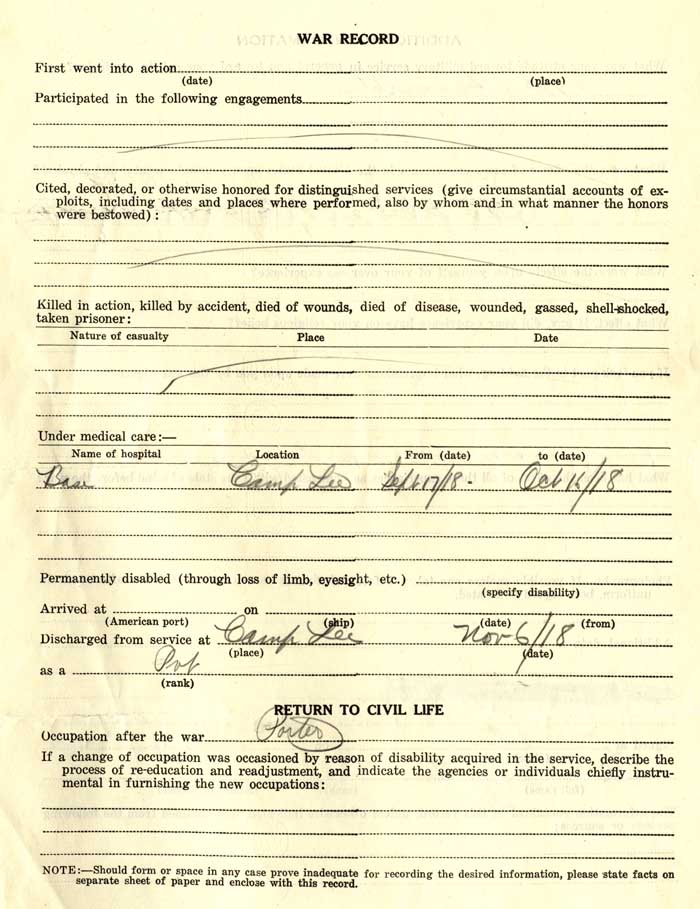 WAR RECORD
First went into action
(date) (place)
Participated in the following engagements
Cited, decorated, or otherwise honored for distinguished services (give circumstantial accounts of ex-
ploits, including dates and places where performed, also by whom and in what manner the honors
were bestowed) :
Killed in action, killed by accident, died of wounds, died of disease, wounded, gassed, shell-shocked,
taken prisoner:
Nature of casualty Place Date
Under medical care:—
Name of hospital Location From (date) to (date)
Base Camp Lee Sept 17/18 - Oct 16/18
Permanently disabled (through loss of limb, eyesight, etc.)
(specify disability)
Arrived at on
(American port) (ship) (date) (from)
Discharged from service at Camp Lee Nov 6/18
(place) (date)
as a Pvt
(rank)
RETURN TO CIVIL LIFE
Occupation after the war Porter
If a change of occupation was occasioned by reason of disability acquired in the service, describe the
process of re-education and readjustment, and indicate the agencies or individuals chiefly instru-
mental in furnishing the new occupations:
NOTE:—Should form or space in any case prove inadequate for recording the desired information, please state facts on
separate sheet of paper and enclose with this record.